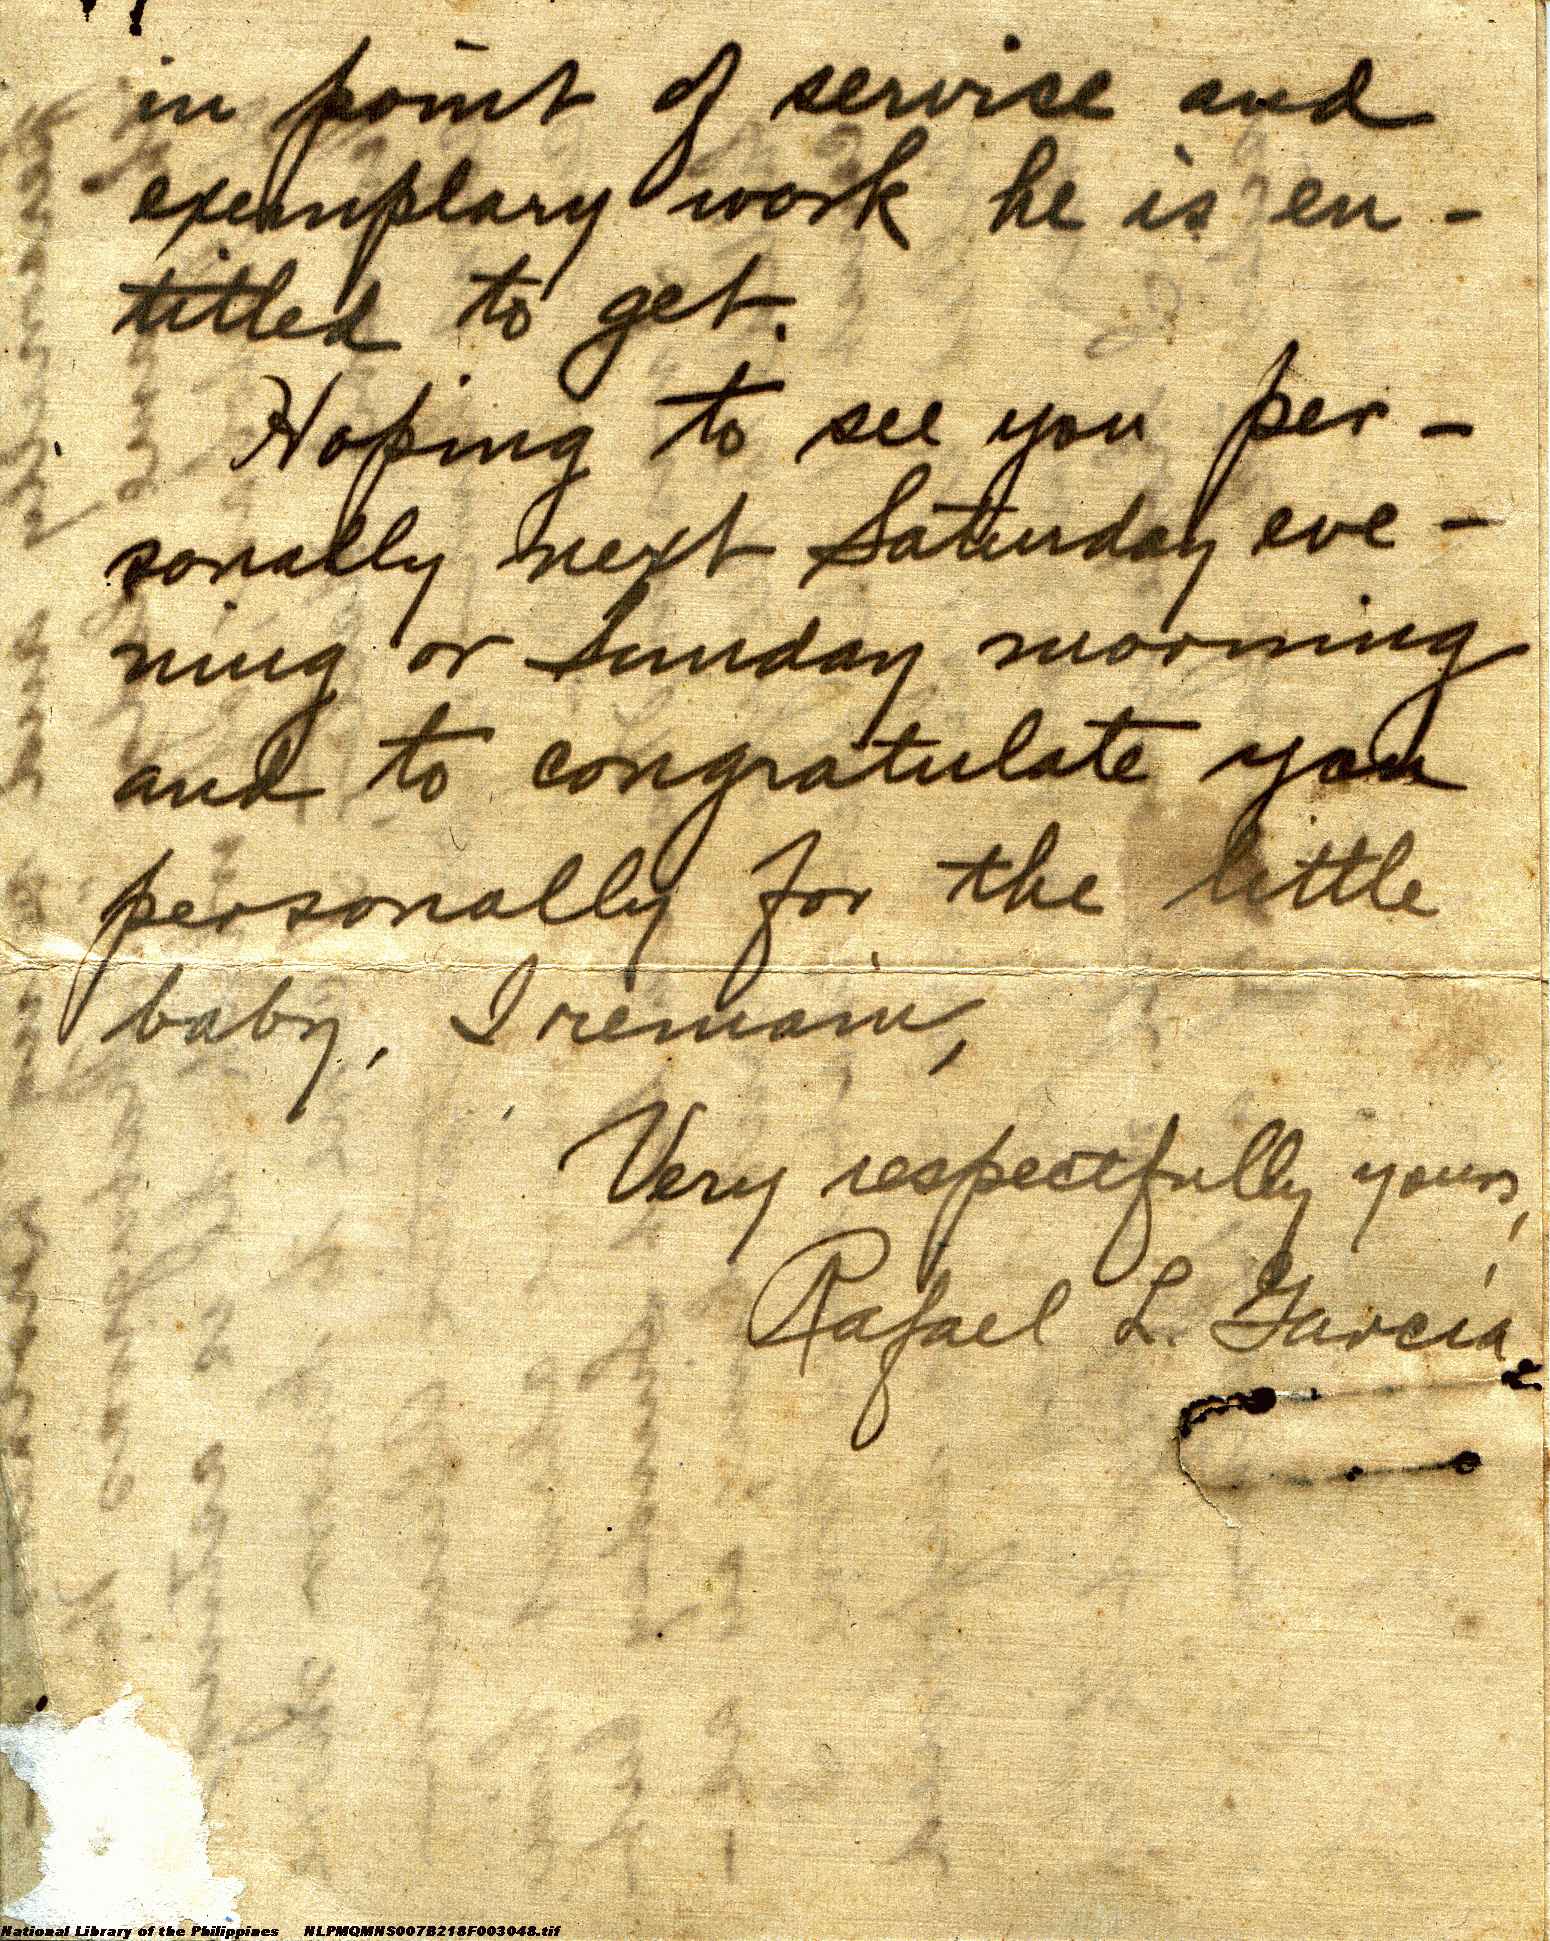 in point of service and
exemplary work he is en-
titled to get.
Hoping to see you per-
sonally next Saturday eve-
ning or Sunday morning
and to congratulate you
personally for the little
baby, I remain,
Very respectfully yours,
Rafael L. Garcia
National Library of the Philippines NLPMQMNS007B218F003048.tif